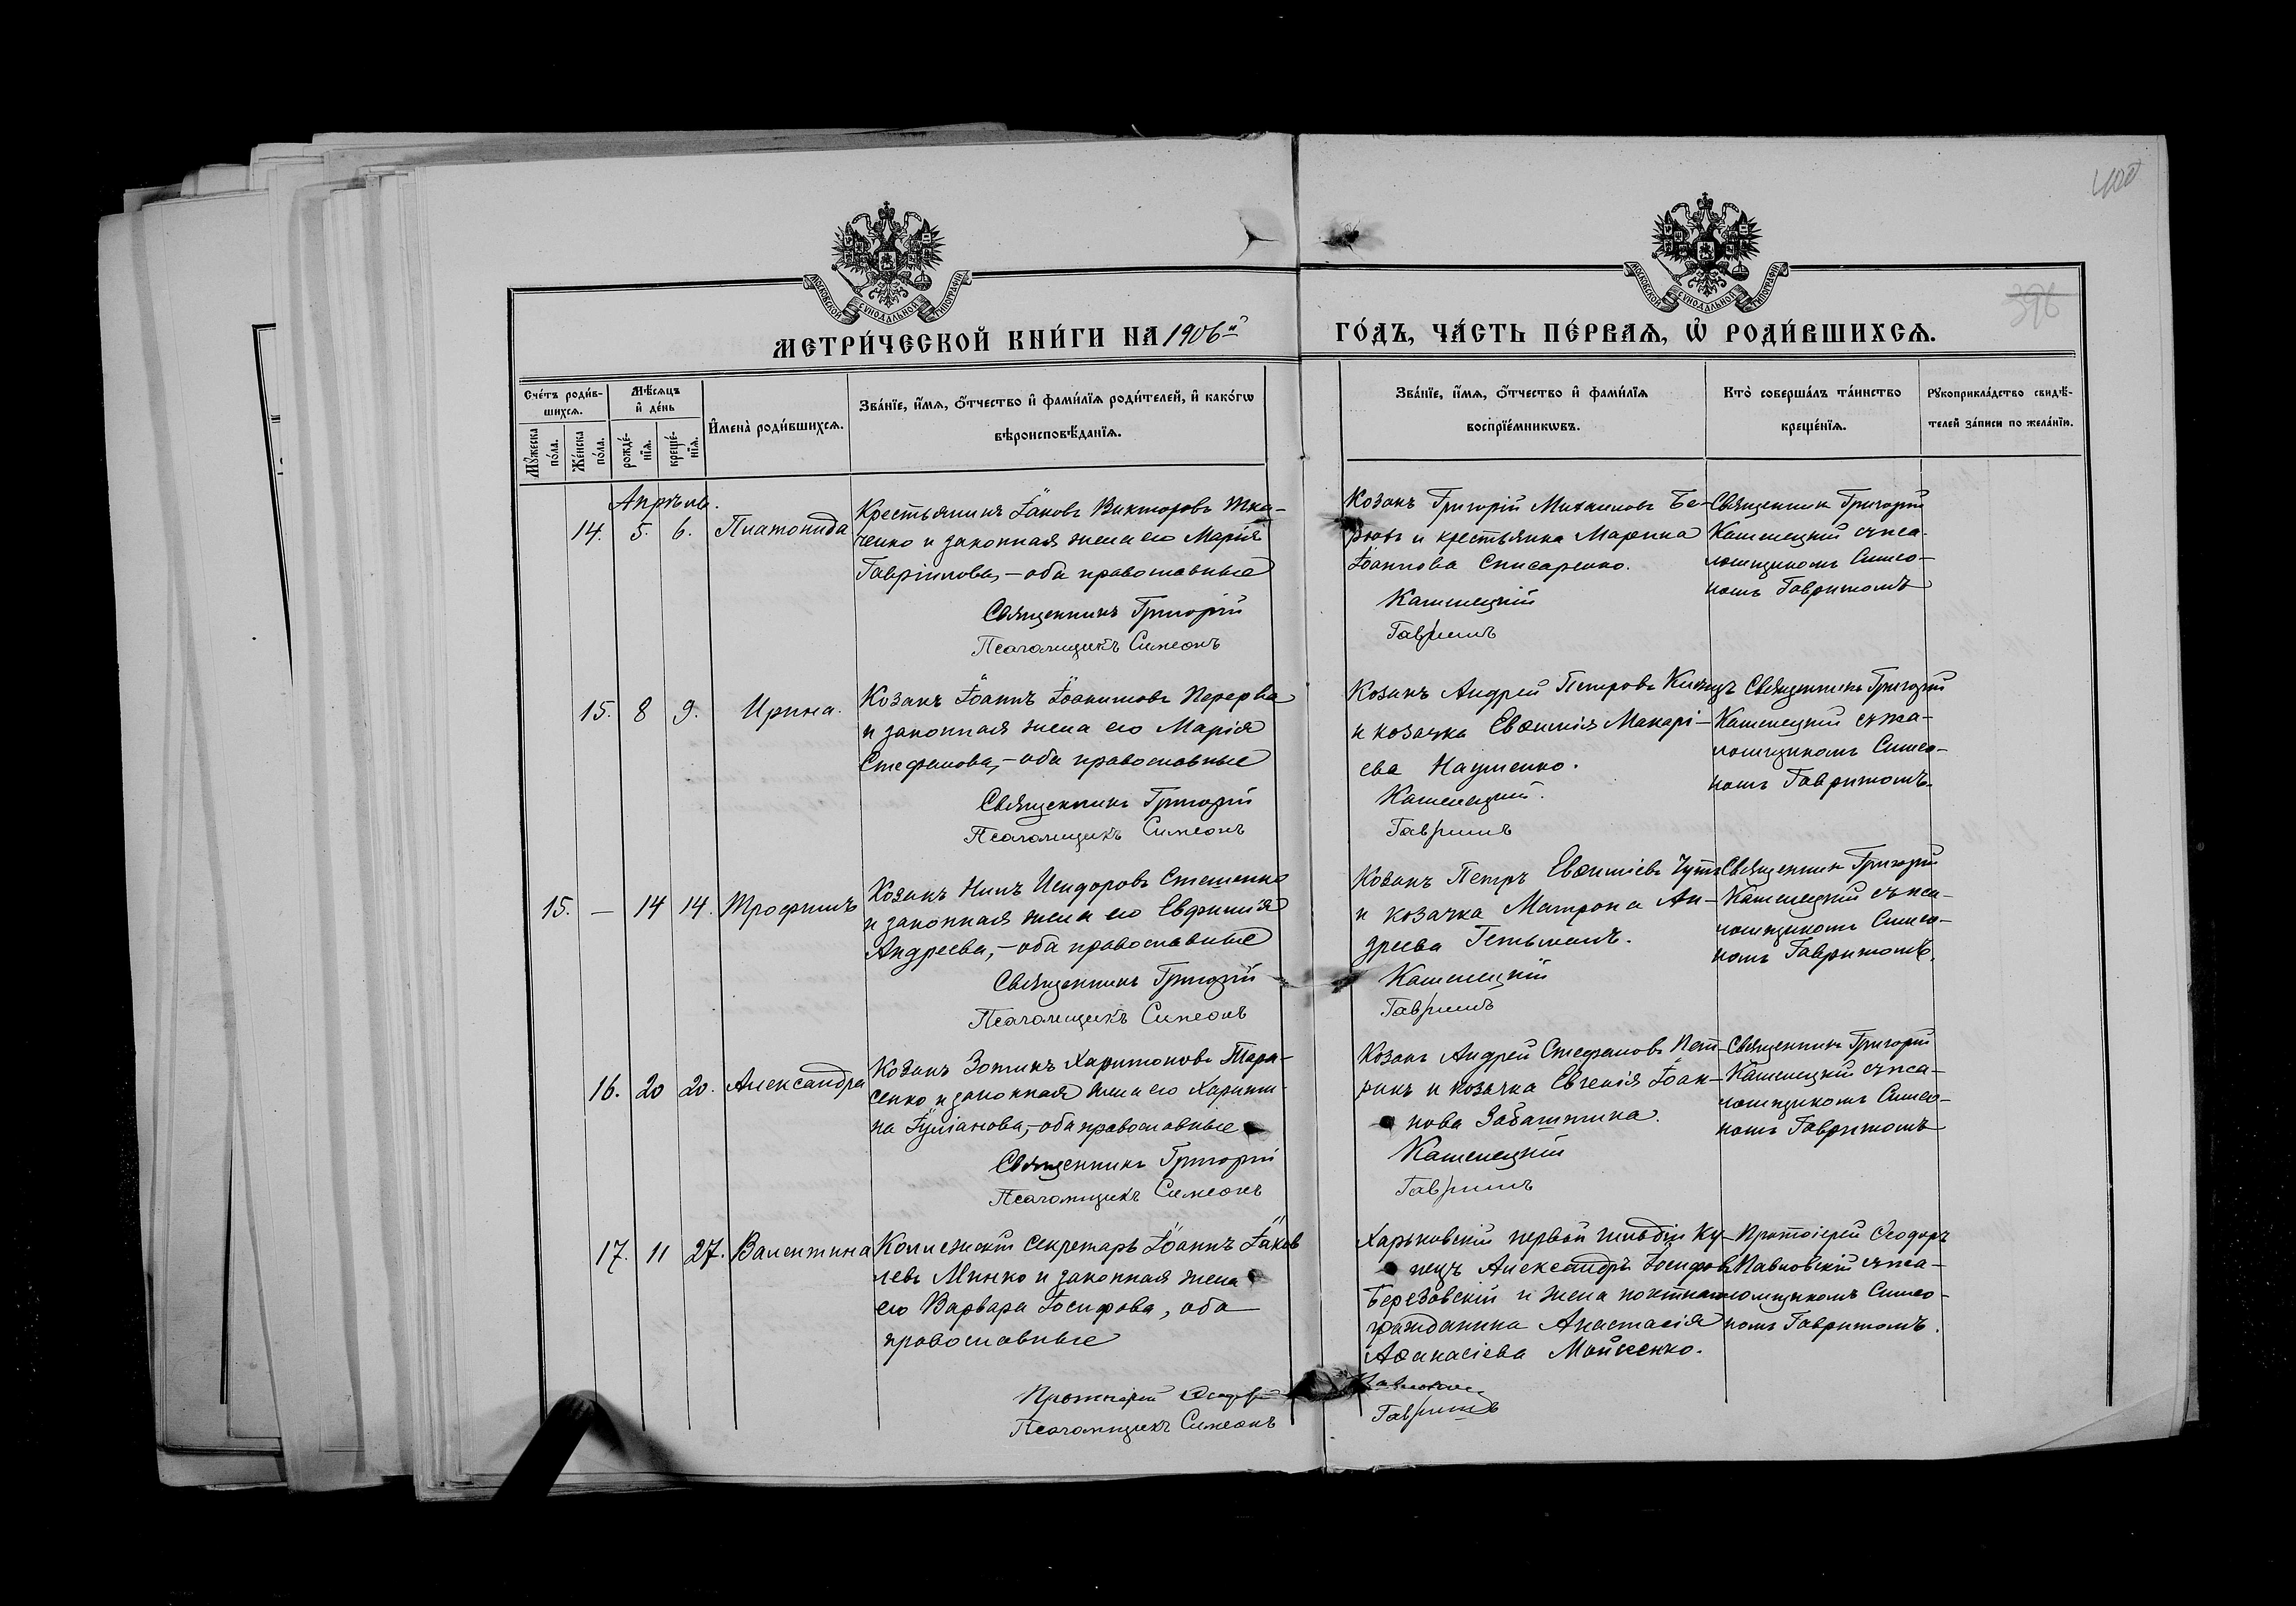 400
396
МОСКОВСКОЙ СѴНОДАЛЬНОЙ ТИПОГРАФІИ
МОСКОВСКОЙ СѴНОДАЛЬНОЙ ТИПОГРАФІИ
МЕТРИ́ЧЕСКОЙ КНИ́ГИ НА 1906й ГО́ДЪ, ЧА́СТЬ ПЕ́РВАѦ, Ѽ РОДИ́ВШИХСѦ.
Сче́тъ роди́в-
шихсѧ.
Мꙋ́жеска по́ла.
Же́нска по́ла.
Мѣ́сѧцъ
и҆ де́нь
рожде́-
нїѧ.
креще́-
нїѧ.
И҆мена̀ роди́вшихсѧ.
Зва́нїе, и҆́мѧ, ѻ҆́тчество и҆ фами́лїѧ роди́телей, и҆ како́гѡ
вѣроисповѣ́данїѧ.
Зва́нїе, и҆́мѧ, ѻ҆́тчество и҆ фами́лїѧ
воспрїе́мникѡвъ.
Кто̀ соверша́лъ та́инство
креще́нїѧ.
Рꙋкоприкла́дство свидѣ́-
телей за́писи по жела́нїю.
Апрѣль.
14. 5. 6. Платонида
Крестьянинъ Іаковъ Викторовъ Тка-
ченко и законная жена его Марія
Гавріилова, – оба православные
Священникъ Григорій
Псаломщикъ Симеонъ
Козакъ Григорій Михаиловъ Бе-
и крестьянка Марина
Іоаннова Списаренко.
Каменецкій
Гавришъ
Священникъ Григорій
Каменецкій съ пса-
ломщикомъ Симео-
номъ Гавришомъ
15. 8 9. Ирина.
Козакъ Іоаннъ Іоакимовъ Перерва
и законная жена его Марія
Стефанова, – оба православные
Священникъ Григорій
Псаломщикъ Симеонъ
Козакъ Андрей Петровъ
и козачка Евѳимія Макарі-
ева Науменко.
Каменецкій.
Гавришъ
Священникъ Григорій
Каменецкій съ пса-
ломщикомъ Симео-
номъ Гавришомъ.
15. – 14 14. Трофимъ
Козакъ Нилъ Исидоровъ Стешенко
и законная жена его Евфимія
Андреева, – оба православные
Священникъ Григорій
Псаломщикъ Симеонъ
Козакъ Петръ Евѳиміевъ
и козачка Матрона Ан-
дреева Гетьманъ.
Каменецкій
Гавришъ
Священникъ Григорій
Каменецкій съ пса-
ломщикомъ Симео-
номъ Гавришомъ.
16. 20 20. Александра
Козакъ Зотикъ Харитоновъ Тара-
сенко и законная жена его Харити-
на Іуліанова, – оба православные
Священникъ Григорій
Псаломщикъ Симеонъ
Козакъ Андрей Стефановъ
и козачка Евгенія Іоан-
нова Забаштина.
Каменецкій
Гавришъ
Священникъ Григорій
Каменецкій съ пса-
ломщикомъ Симео-
номъ Гавришомъ
17. 11 27. Валентина
Коллежскій секретарь Іоаннъ Іаков
левъ Минко и законная жена
его Варвара Іосифова, оба
православные
Протоіерей Ѳеодоръ
Псаломщикъ Симеонъ
Харьковскій первой гильдіи ку-
пецъ Александръ Іосифовъ
Березовскій и жена
гражданина Анастасія
Аѳанасіева Мойсеенко.
Павловскій
Гавришъ
Протоіерей Ѳеодоръ
Павловскій съ пса-
ломщикомъ Симео-
номъ Гавришомъ.